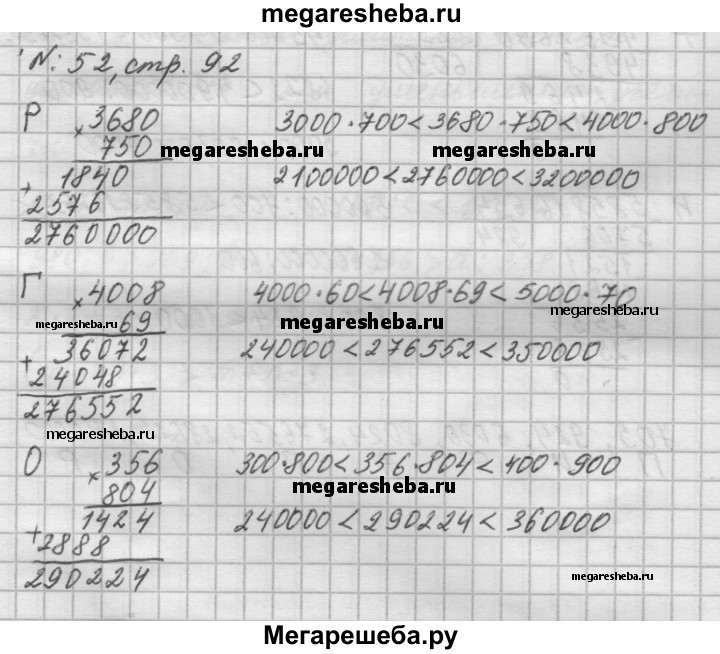 megaresheba.ru
№: 52, стр. 92
Р × 3680 3000·700<3680·750<4000·800
750 megaresheba.ru megaresheba.ru
+ 1840 2100000<2760000<3200000
2576
2760000
Г × 4008 4000·60<4008·69<5000·70
megaresheba.ru 69 megaresheba.ru megaresheba.ru
+ 36072 240000<276552<350000
24048
276552
megaresheba.ru
О × 356 300·800<356·804<400·900
804 megaresheba.ru
+ 1424 240000<290224<360000
2888
290224 megaresheba.ru
Мегарешеба.ру